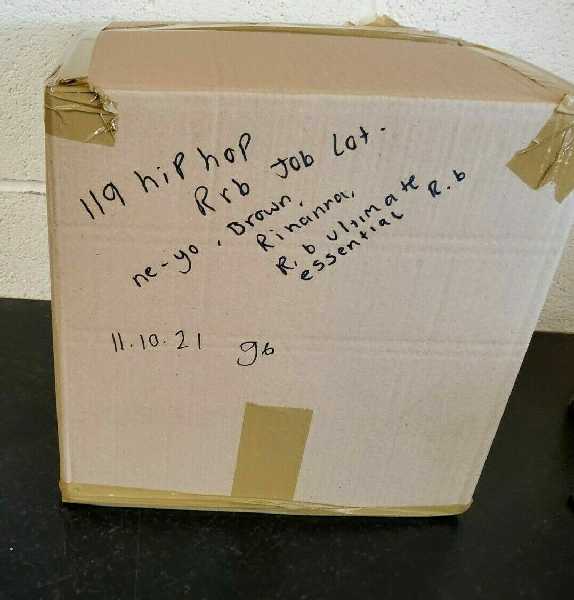 119 hip hop
Rrb Job Lot.
ne-yo, Brown,
Rinanna,
R.b ultimate
essential R.b
11.10.21 gb